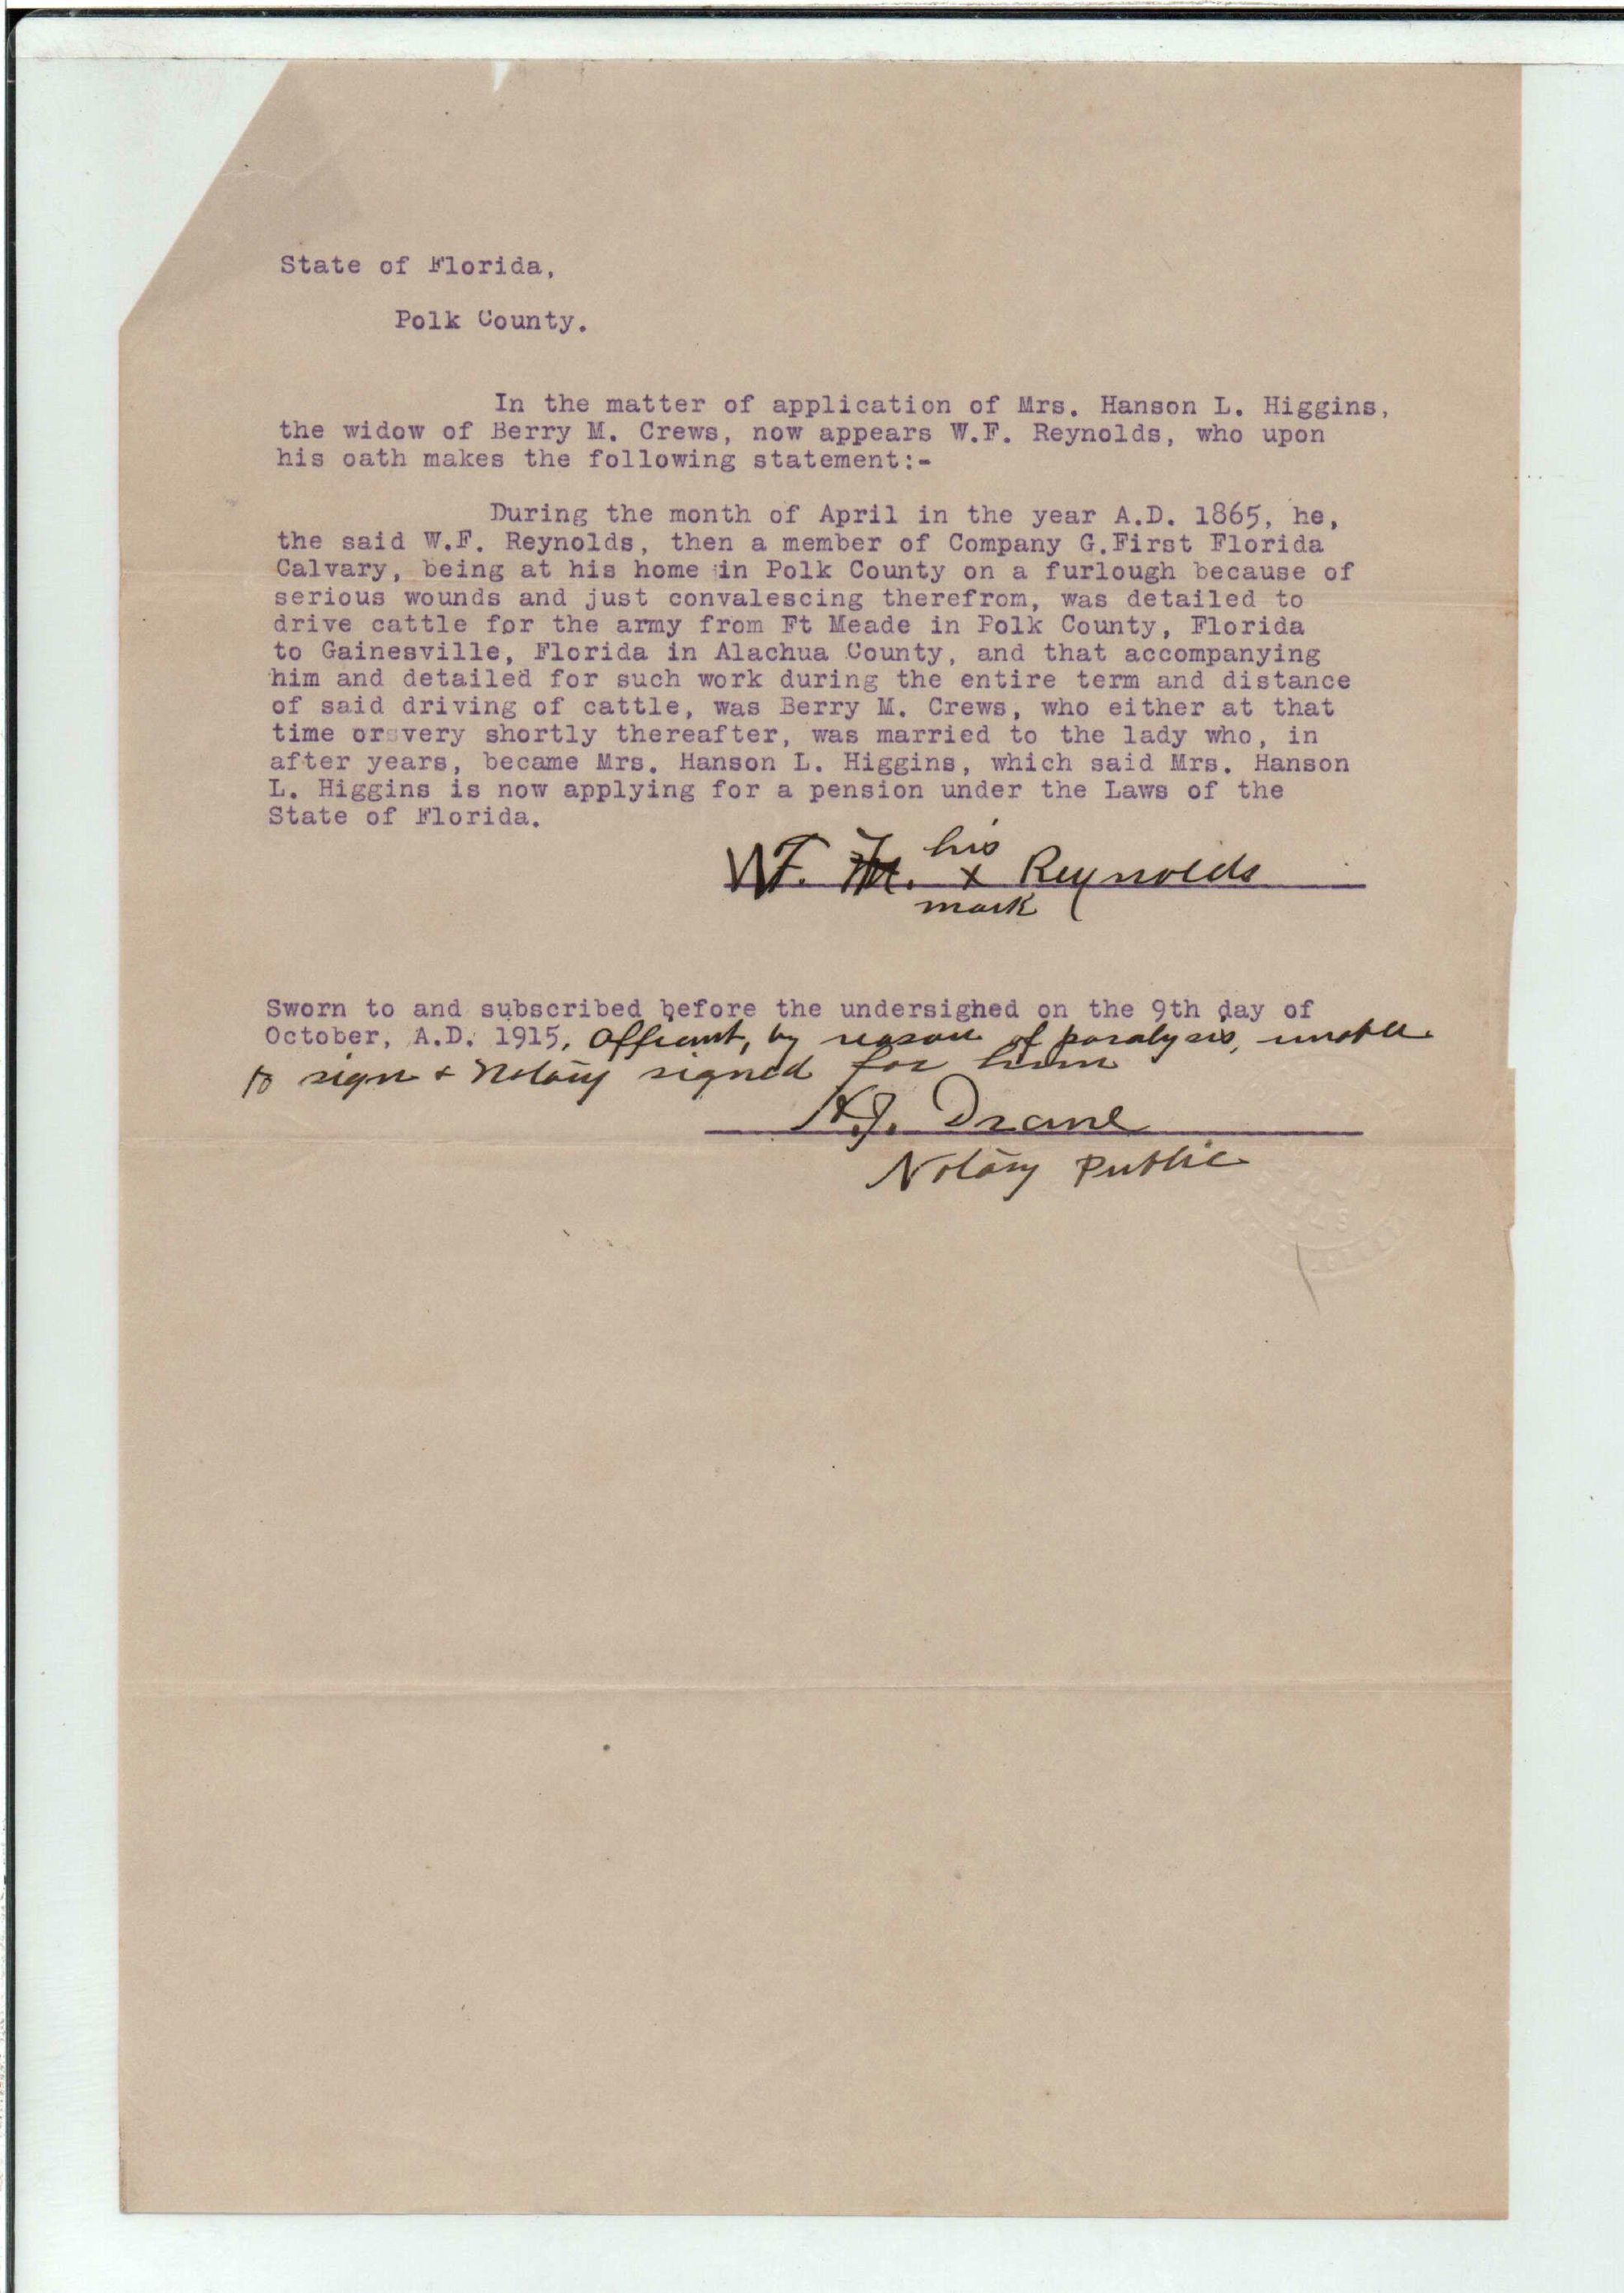 State of Florida,
Polk County.
In the matter of application of Mrs. Hanson L. Higgins,
the widow of Berry M. Crews, now appears W.F. Reynolds, who upon
his oath makes the following statement:-
During the month of April in the year A.D. 1865, he,
the said W.F. Reynolds, then a member of Company G.First Florida
Calvary, being at his home in Polk County on a furlough because of
serious wounds and just convalescing therefrom, was detailed to
drive cattle for the army from Ft Meade in Polk County, Florida
to Gainesville, Florida in Alachua County, and that accompanying
him and detailed for such work during the entire term and distance
of said driving of cattle, was Berry M. Crews, who either at that
time or very shortly thereafter, was married to the lady who, in
after years, became Mrs. Hanson L. Higgins, which said Mrs. Hanson
L. Higgins is now applying for a pension under the Laws of the
State of Florida.
his
W.F. x Reynolds
mark
Sworn to and subscribed before the undersighed on the 9th day of
October, A.D. 1915, Affiant, by reason of paralysis, unable
to sign & Notary signed for him
H.J. Drane
Notary Public